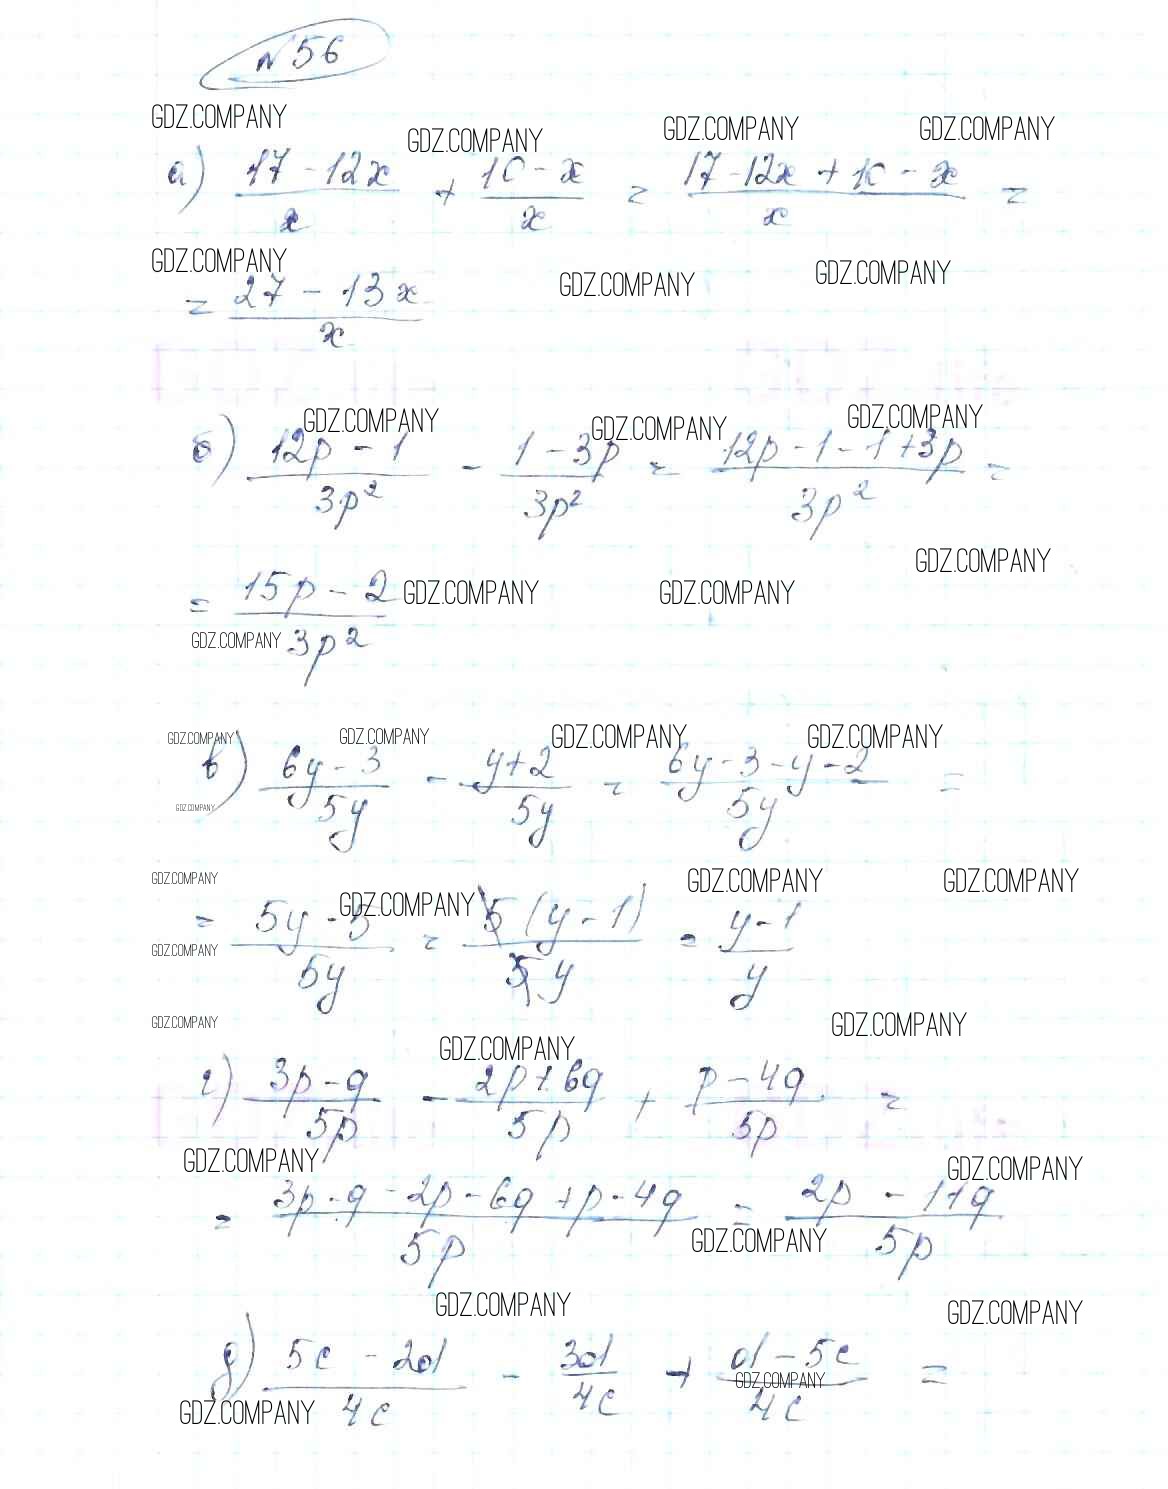 №56
GDZ.COMPANY GDZ.COMPANY GDZ.COMPANY GDZ.COMPANY
а) (17 - 12x)/x + (10 - x)/x = (17 - 12x + 10 - x)/x =
GDZ.COMPANY GDZ.COMPANY GDZ.COMPANY
= (27 - 13x)/x
GDZ.COMPANY GDZ.COMPANY GDZ.COMPANY
б) (12p - 1)/3p² - (1 - 3p)/3p² = (12p - 1 - 1 + 3p)/3p² =
GDZ.COMPANY
= (15p - 2)/3p² GDZ.COMPANY GDZ.COMPANY
GDZ.COMPANY
GDZ.COMPANY GDZ.COMPANY GDZ.COMPANY GDZ.COMPANY
в) (6y - 3)/5y - (y + 2)/5y = (6y - 3 - y - 2)/5y =
GDZ.COMPANY
GDZ.COMPANY GDZ.COMPANY GDZ.COMPANY GDZ.COMPANY
= (5y - 5)/5y = 5(y - 1)/5y = (y - 1)/y
GDZ.COMPANY
GDZ.COMPANY GDZ.COMPANY GDZ.COMPANY
г) (3p - q)/5p - (2p + 6q)/5p + (p - 4q)/5p =
GDZ.COMPANY GDZ.COMPANY
= (3p - q - 2p - 6q + p - 4q)/5p = (2p - 11q)/5p
GDZ.COMPANY
GDZ.COMPANY GDZ.COMPANY
д) (5c - 2d)/4c - 3d/4c + (d - 5c)/4c =
GDZ.COMPANY GDZ.COMPANY